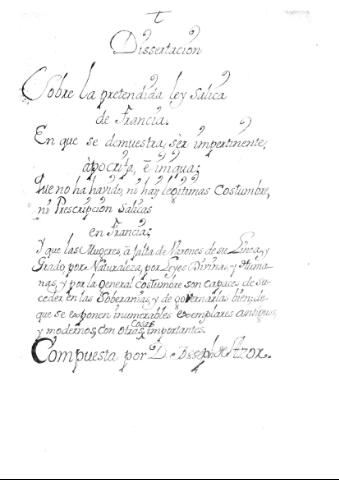 Dissertación
Sobre la pretendida ley Salica
de Francia.
En que se demuestra, sèr impertinente,
àpocrifa, è iniqua;
Que no ha havido, ni hay legitimas Costumbre,
ni Prescripcion Salicas
en Francia;
Y que las Mugeres, à falta de Varones de su Linea, y
Grado, por Naturaleza, por Leyes Divinas, y Huma-
nas, y por la general Costumbre son capaces de Su-
ceder en las Soberanias, y de governarlas bien; de
que se exponen inumerables exemplares antiguos,
y modernos, con otras cosas importantes.
Compuesta por D. Joseph de Azor.